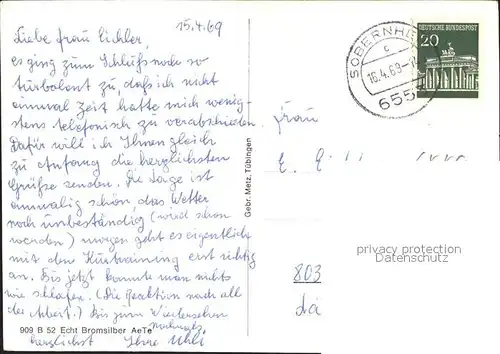 15.4.69
Liebe Frau Eichler,
es ging zum Schluß noch so
turbulent zu, daß ich nicht
einmal Zeit hatte mich wenig-
stens telefonisch zu verabschieden.
Dafür will ich Ihnen gleich
zu Anfang die herzlichsten
Grüße senden. Die Lage ist
einmalig schön, das Wetter
noch unbeständig (wird schon
werden) morgen geht es eigentlich
mit dem Kurtraining erst richtig
an. Bis jetzt konnte man nichts
wie schlafen. (Die Reaktion nach all
der Arbeit.) Bis zum Wiedersehen
nochmals
herzlichst Ihre Uhli
909 B 52 Echt Bromsilber AeTe
Gebr. Metz, Tübingen
SOBERNHEIM
c
16.4.69
655
DEUTSCHE BUNDESPOST
20
Frau
E.
privacy protection
Datenschutz
803